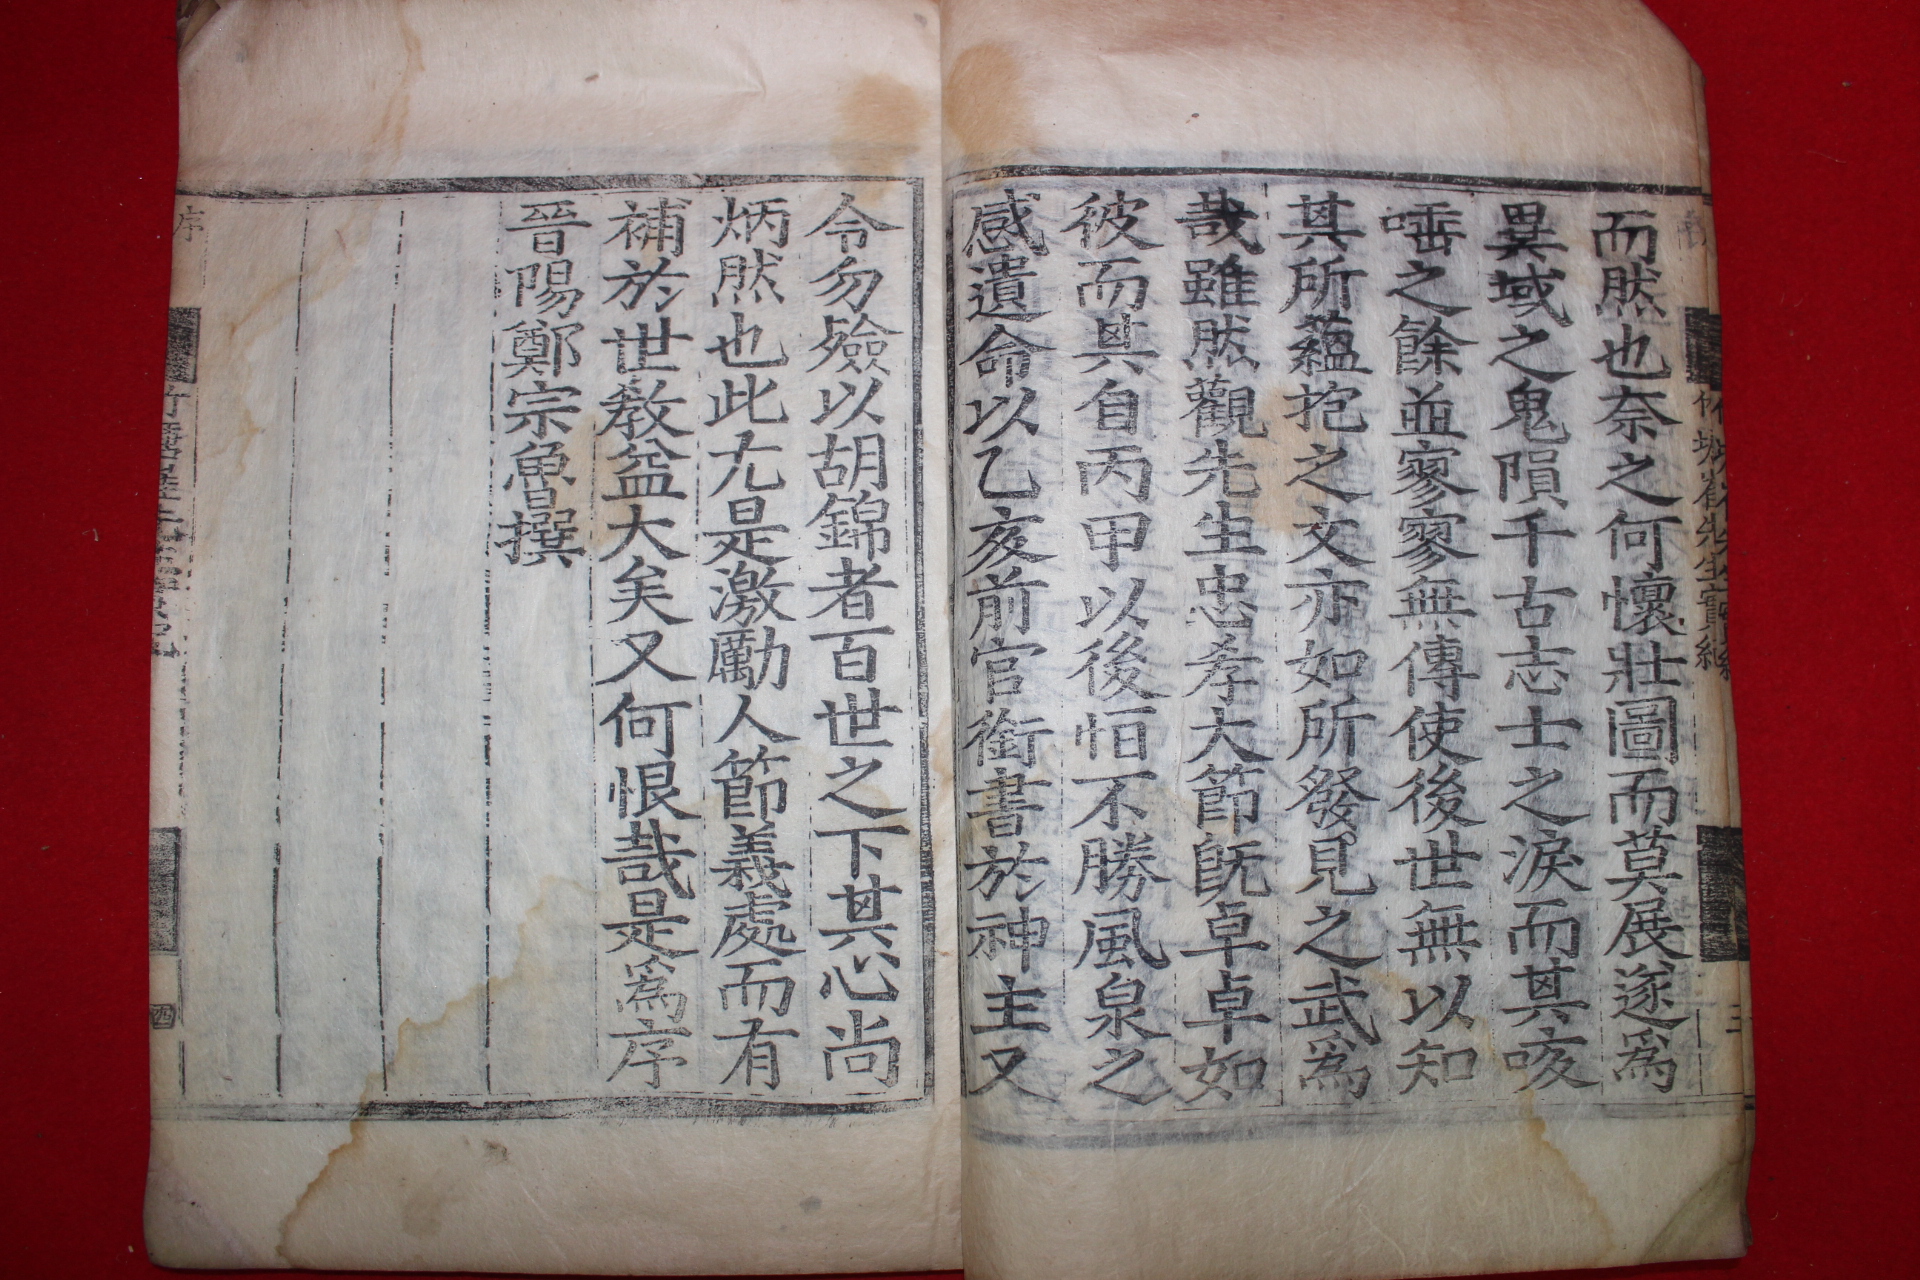 而然也奈之何懷壯圖而莫展遂爲
異域之鬼隕千古志士之淚而其咳
唾之餘並寥寥無傳使後世無以知
其所蘊抱之文亦如所發見之武爲
哉雖然觀先生忠孝大節旣卓卓如
彼而其自丙甲以後恒不勝風泉之
感遺命以乙亥前官銜書於神主又
令勿殮以胡錦者百世之下其心尚
炳然也此尤是激勵人節義處而有
補於世敎益大矣又何恨哉是爲序
晉陽鄭宗魯撰
序
四
三